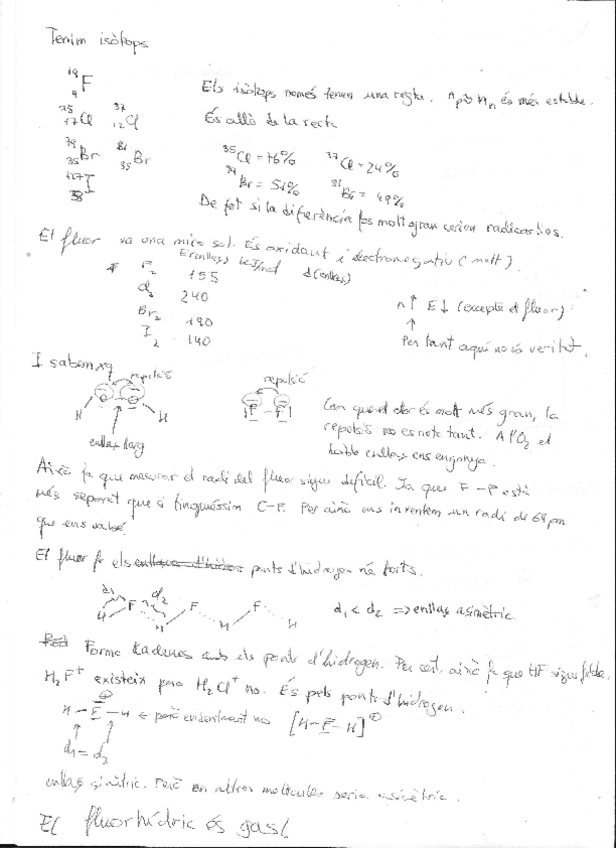 Tenim isòtops
¹⁹₉F
Els isòtops només tenen una regla. és més estable.
³⁵₁₇Cl ³⁷₁₂Cl
És allò de la recta
⁷⁹₃₅Br ⁸¹₃₅Br
³⁵Cl = 76% ³⁷Cl = 24%
¹²⁷I
⁷⁹Br = 51% ⁸¹Br = 49%
De fet si la diferència fos molt gran serien radioactius.
El fluor va una mica sol. És oxidant i electronegatiu (molt).
E(enllaç) kJ/mol d(enllaç)
F₂ 155
Cl₂ 240
Br₂ 190
I₂ 140
n↑ E↓ (excepte el fluor)
↑
Per tant aquí no és veritat.
I sabem xq
repulsió
repulsió
H O O H
F - F
enllaç llarg
Com que el clor és molt més gran, la
repulsió no es nota tant. A l'O₂ el
doble enllaç ens enganya.
Això fa que mesurar el radi del fluor sigui difícil. Ja que F-F està
més separat que si tinguéssim C-F. Per això ens inventem un radi de 64 pm
que ens va bé.
El fluor fa els ponts d'hidrogen més forts.
d₁ d₂
H F H F H F H
d₁ < d₂ => enllaç asimètric.
Forma cadenes amb els ponts d'hidrogen. Per cert, això fa que HF sigui feble.
H₂F⁺ existeix però H₂Cl⁺ no. És pels ponts d'hidrogen.
H - F - H ← però evidentment no [H-F-H]⊕
d₁ = d₂
enllaç simètric. Però en altres molècules seria asimètric.
El fluorhídric és gas!